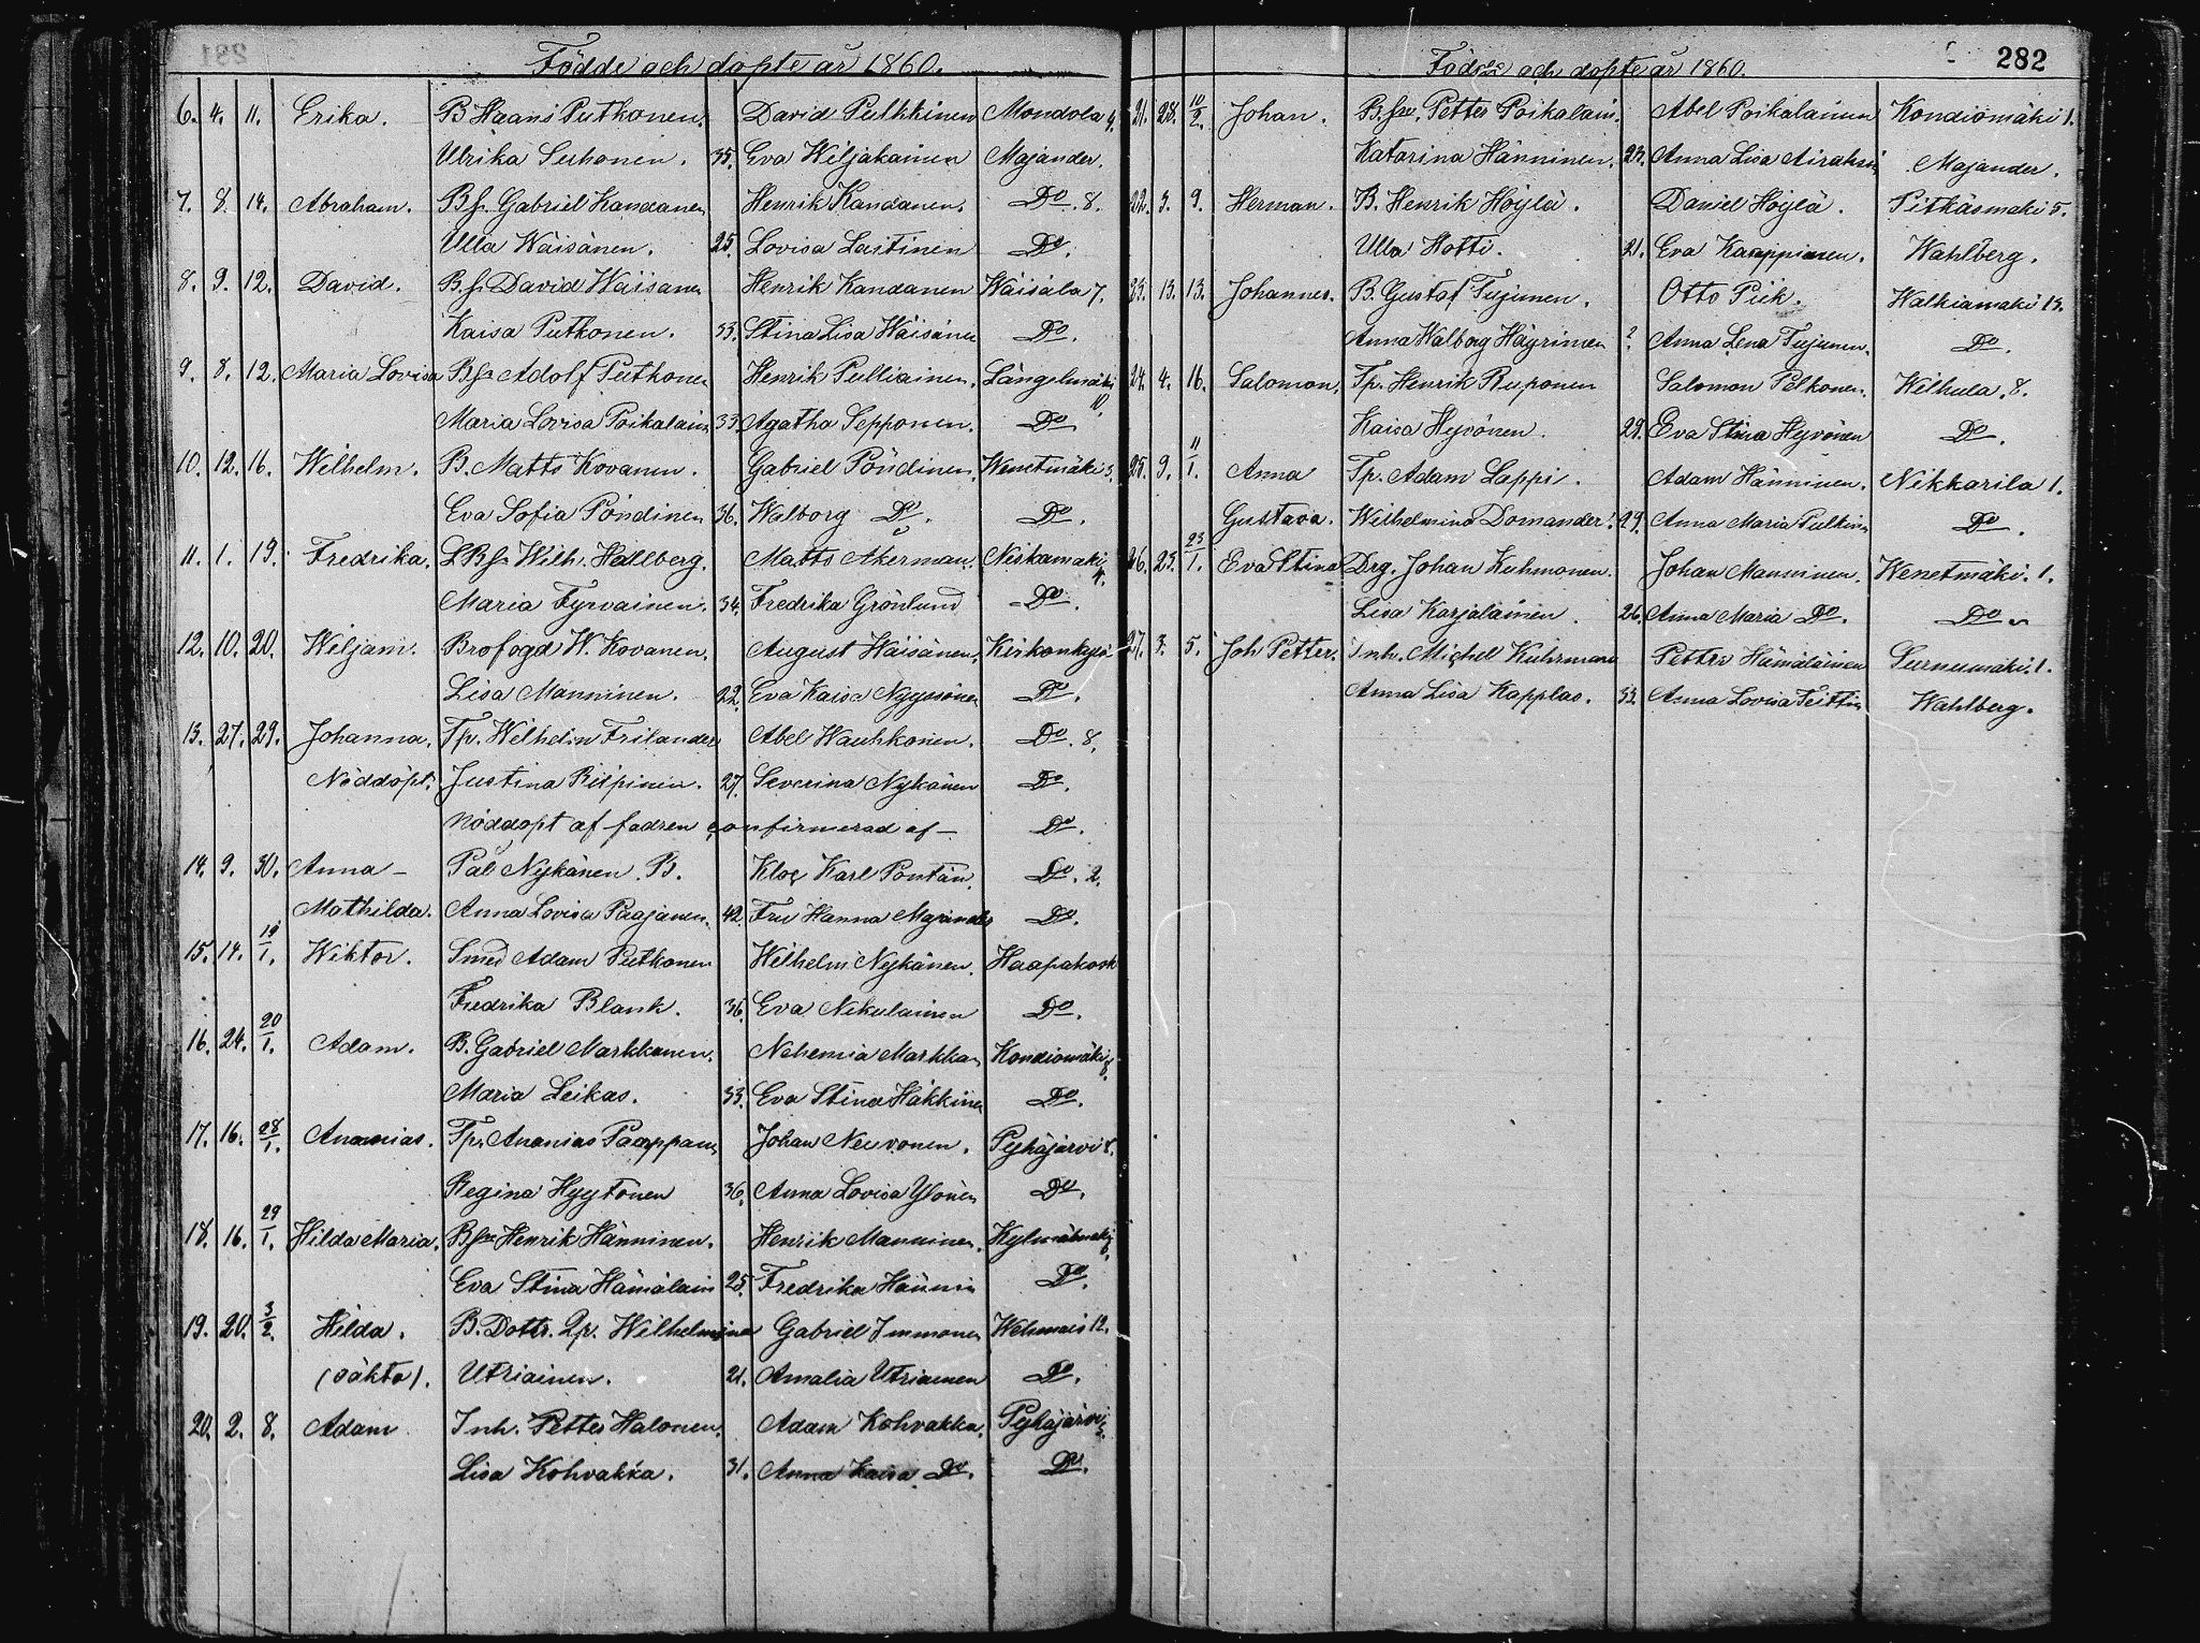 Födde och döpte år 1860.
6. 4. 11. Erika. B Haans Putkonen. David Pulkkinen Mondola 4.
Ulrika Suhonen. 35. Eva Wiljakainen Majander.
7. 8. 14. Abraham. Bs. Gabriel Kandanen Henrik Kandanen. Do. 8.
Ulla Wäisänen. 25. Lovisa Lastinen Do.
8. 9. 12. David. Bs. David Wäisänen Henrik Kandanen Wäisälä 7.
Kaisa Putkonen. 33. Stina Lisa Wäisänen Do.
9. 8. 12. Maria Lovisa Bs Adolf Putkonen Henrik Pulliainen. Längelmäki 10.
Maria Lovisa Poikalain 33. Agatha Sepponen. Do
10. 12. 16. Wilhelm. B. Matts Kovanen. Gabriel Pöndinen. Wenetmäki 3.
Eva Sofia Pöndinen 36. Walborg Do. Do.
11. 1. 19. Fredrika. LBs Wilh. Hallberg. Matts Akerman. Niskamäki 4.
Maria Tyrvainen. 34. Fredrika Grönlund Do.
12. 10. 20. Wiljam. Brofogd W. Kovanen. August Häisänen. Kirkonkylä
Lisa Manninen. 22. Eva Kaisa Nyyssönen Do.
13. 27. 29. Johanna. Tp. Wilhelm Frilander Abel Hauhkonen. Do. 8.
Nöddöpt. Justina Riipinen. 27. Severina Nykänen Do.
Nöddöpt af fadren confirmerad af — Do.
14. 9. 30. Anna - Pål Nykänen. B. Kloc Karl Pontän. Do. 2.
Mathilda. Anna Lovisa Paajanen. 42. Fru Hanna Majander Do.
15. 14. 19/1. Wiktor. Smed Adam Putkonen Wilhelm Nykänen. Haapakosk
Fredrika Blank. 36. Eva Nikulainen Do.
16. 24. 20/1. Adam. B. Gabriel Markkanen. Nehemia Markkan Kondiomäki 8.
Maria Leikas. 33. Eva Stina Häkkinen Do.
17. 16. 28/1. Ananias. Tp. Ananias Paappan Johan Neuvonen. Pyhäjärvi 8.
Regina Hyytönen 36. Anna Lovisa Ylönen Do.
18. 16. 29/1. Hilda Maria. Bs Henrik Hänninen. Henrik Manninen. Kylmämäki 8.
Eva Stina Hämäläin 25. Fredrika Hännin Do.
19. 20. 3/2. Hilda. B. Dottr. Qp. Wilhelmina Gabriel Immonen Wehmais 12.
(oäkta). Utriainen. 21. Amalia Utriainen Do.
20. 2. 8. Adam Inh. Petter Halonen. Adam Kohvakka. Pyhäjärvi 3.
Lisa Kohvakka. 31. Anna Kaisa Do. Do.
Födde och döpte år 1860. 282
21. 28. 10/2. Johan. B.son. Petter Poikalain. Abel Poikalainen Kondiomäki 1.
Katarina Hänninen. 23. Anna Lisa Airaksin Majander.
22. 3. 9. Herman. B. Henrik Höylä. Daniel Höylä. Pitkäsmäki 5.
Ulla Hotti. 21. Eva Kaappinen. Wahlberg.
23. 13. 13. Johannes. B. Gustaf Tujunen. Otto Piik. Walkiamäki 13.
Anna Walborg Häyrinen ? Anna Lena Tujunen. Do.
24. 4. 16. Salomon. Tp. Henrik Ruponen Salomon Pelkonen. Wilhula. 8.
Kaisa Hyvönen. 29. Eva Stina Hyvönen Do.
25. 9. 11/1. Anna Tp. Adam Lappi. Adam Hänninen. Nikkarila 1.
Gustava. Wilhelmina Domander. 29. Anna Maria Pulkin Do.
26. 23. 23/1. Eva Stina Drg. Johan Kuhmonen. Johan Manninen. Wenetmäki. 1.
Lisa Karjalainen. 26. Anna Maria Do. Do
27. 3. 5. Joh Petter. Inh. Michel Kuhrman Petter Hämäläinen Surnumäki. 1.
Anna Lisa Kapplas. 33. Anna Lovisa Teittin Wahlberg.